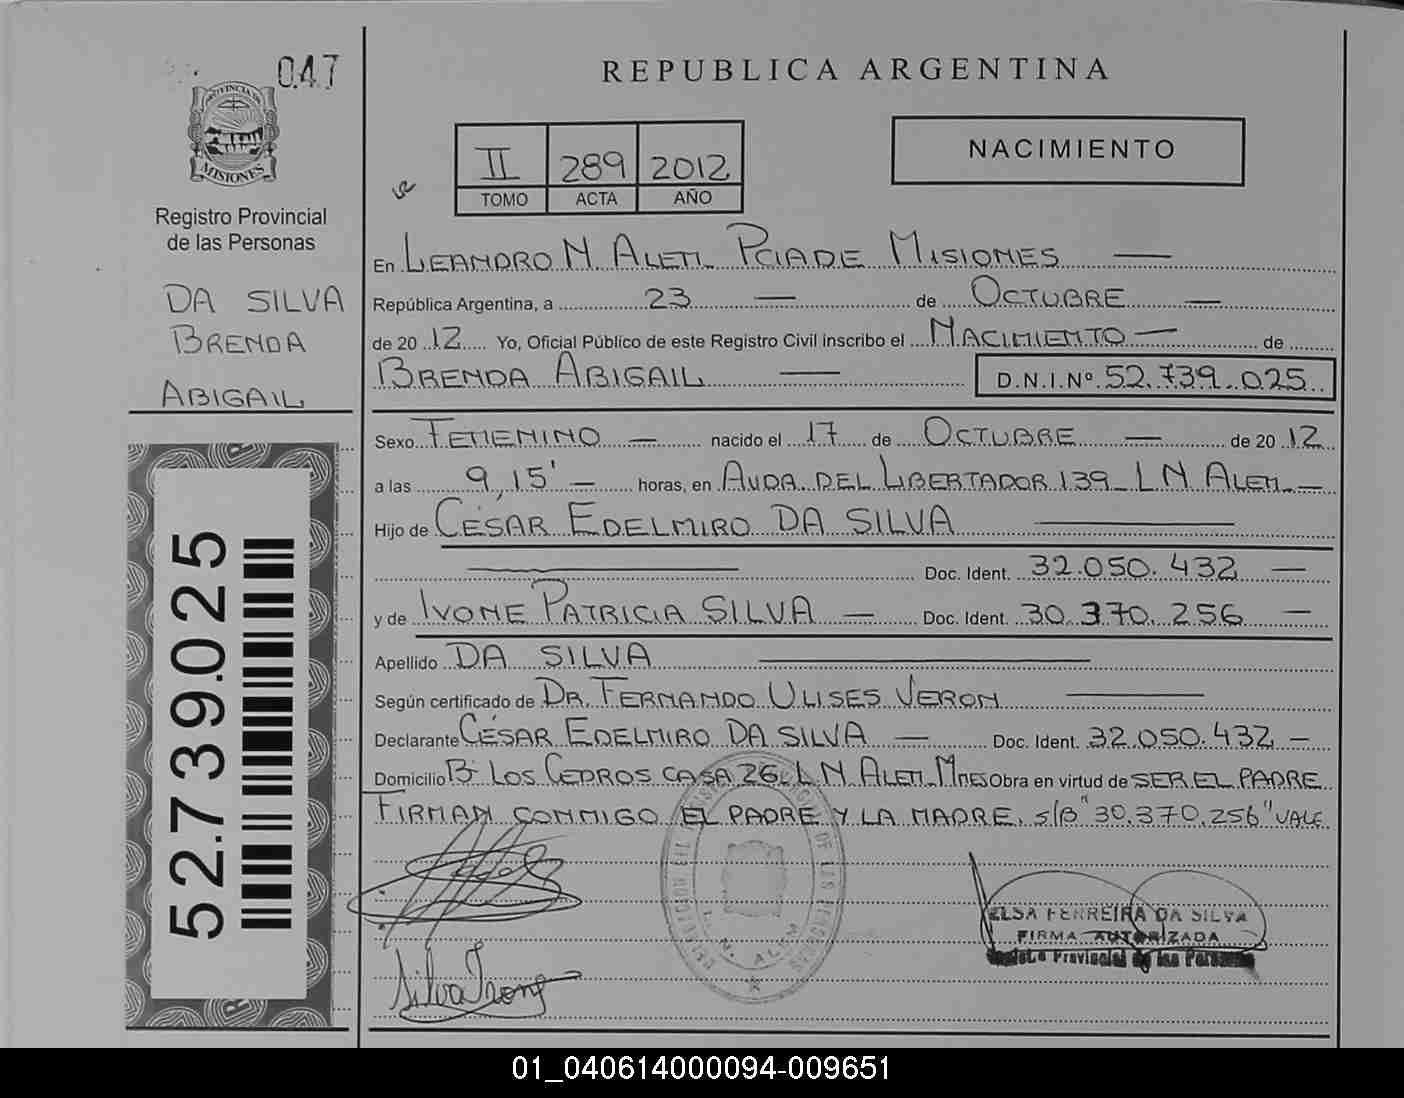 047
PROVINCIA DE
MISIONES
Registro Provincial
de las Personas
DA SILVA
BRENDA
ABIGAIL
52.739.025
REPUBLICA ARGENTINA
II 289 2012
TOMO ACTA AÑO
NACIMIENTO
En LEANDRO N. ALEM PCIA DE MISIONES —
República Argentina, a 23 — de OCTUBRE —
de 2012 Yo, Oficial Público de este Registro Civil inscribo el NACIMIENTO — de
BRENDA ABIGAIL — D.N.I.Nº 52.739.025
Sexo FEMENINO — nacido el 17 de OCTUBRE — de 2012
a las 9,15' — horas, en AVDA. DEL LIBERTADOR 139 - L N ALEM. —
Hijo de CÉSAR EDELMIRO DA SILVA —
— Doc. Ident. 32.050.432 —
y de IVONE PATRICIA SILVA — Doc. Ident. 30.370.256 —
Apellido DA SILVA —
Según certificado de DR. FERNANDO ULISES VERON —
Declarante CÉSAR EDELMIRO DA SILVA — Doc. Ident. 32.050.432 —
Domicilio Bº LOS CEDROS CASA 26. L N ALEM. MNES Obra en virtud de SER EL PADRE
FIRMAN CONMIGO EL PADRE Y LA MADRE. s/B "30.370.256" VALE.
L. N. ALEM
ELSA FERREIRA DA SILVA
FIRMA AUTORIZADA
Registro Provincial de las Personas
Silva Ivone
01_040614000094-009651